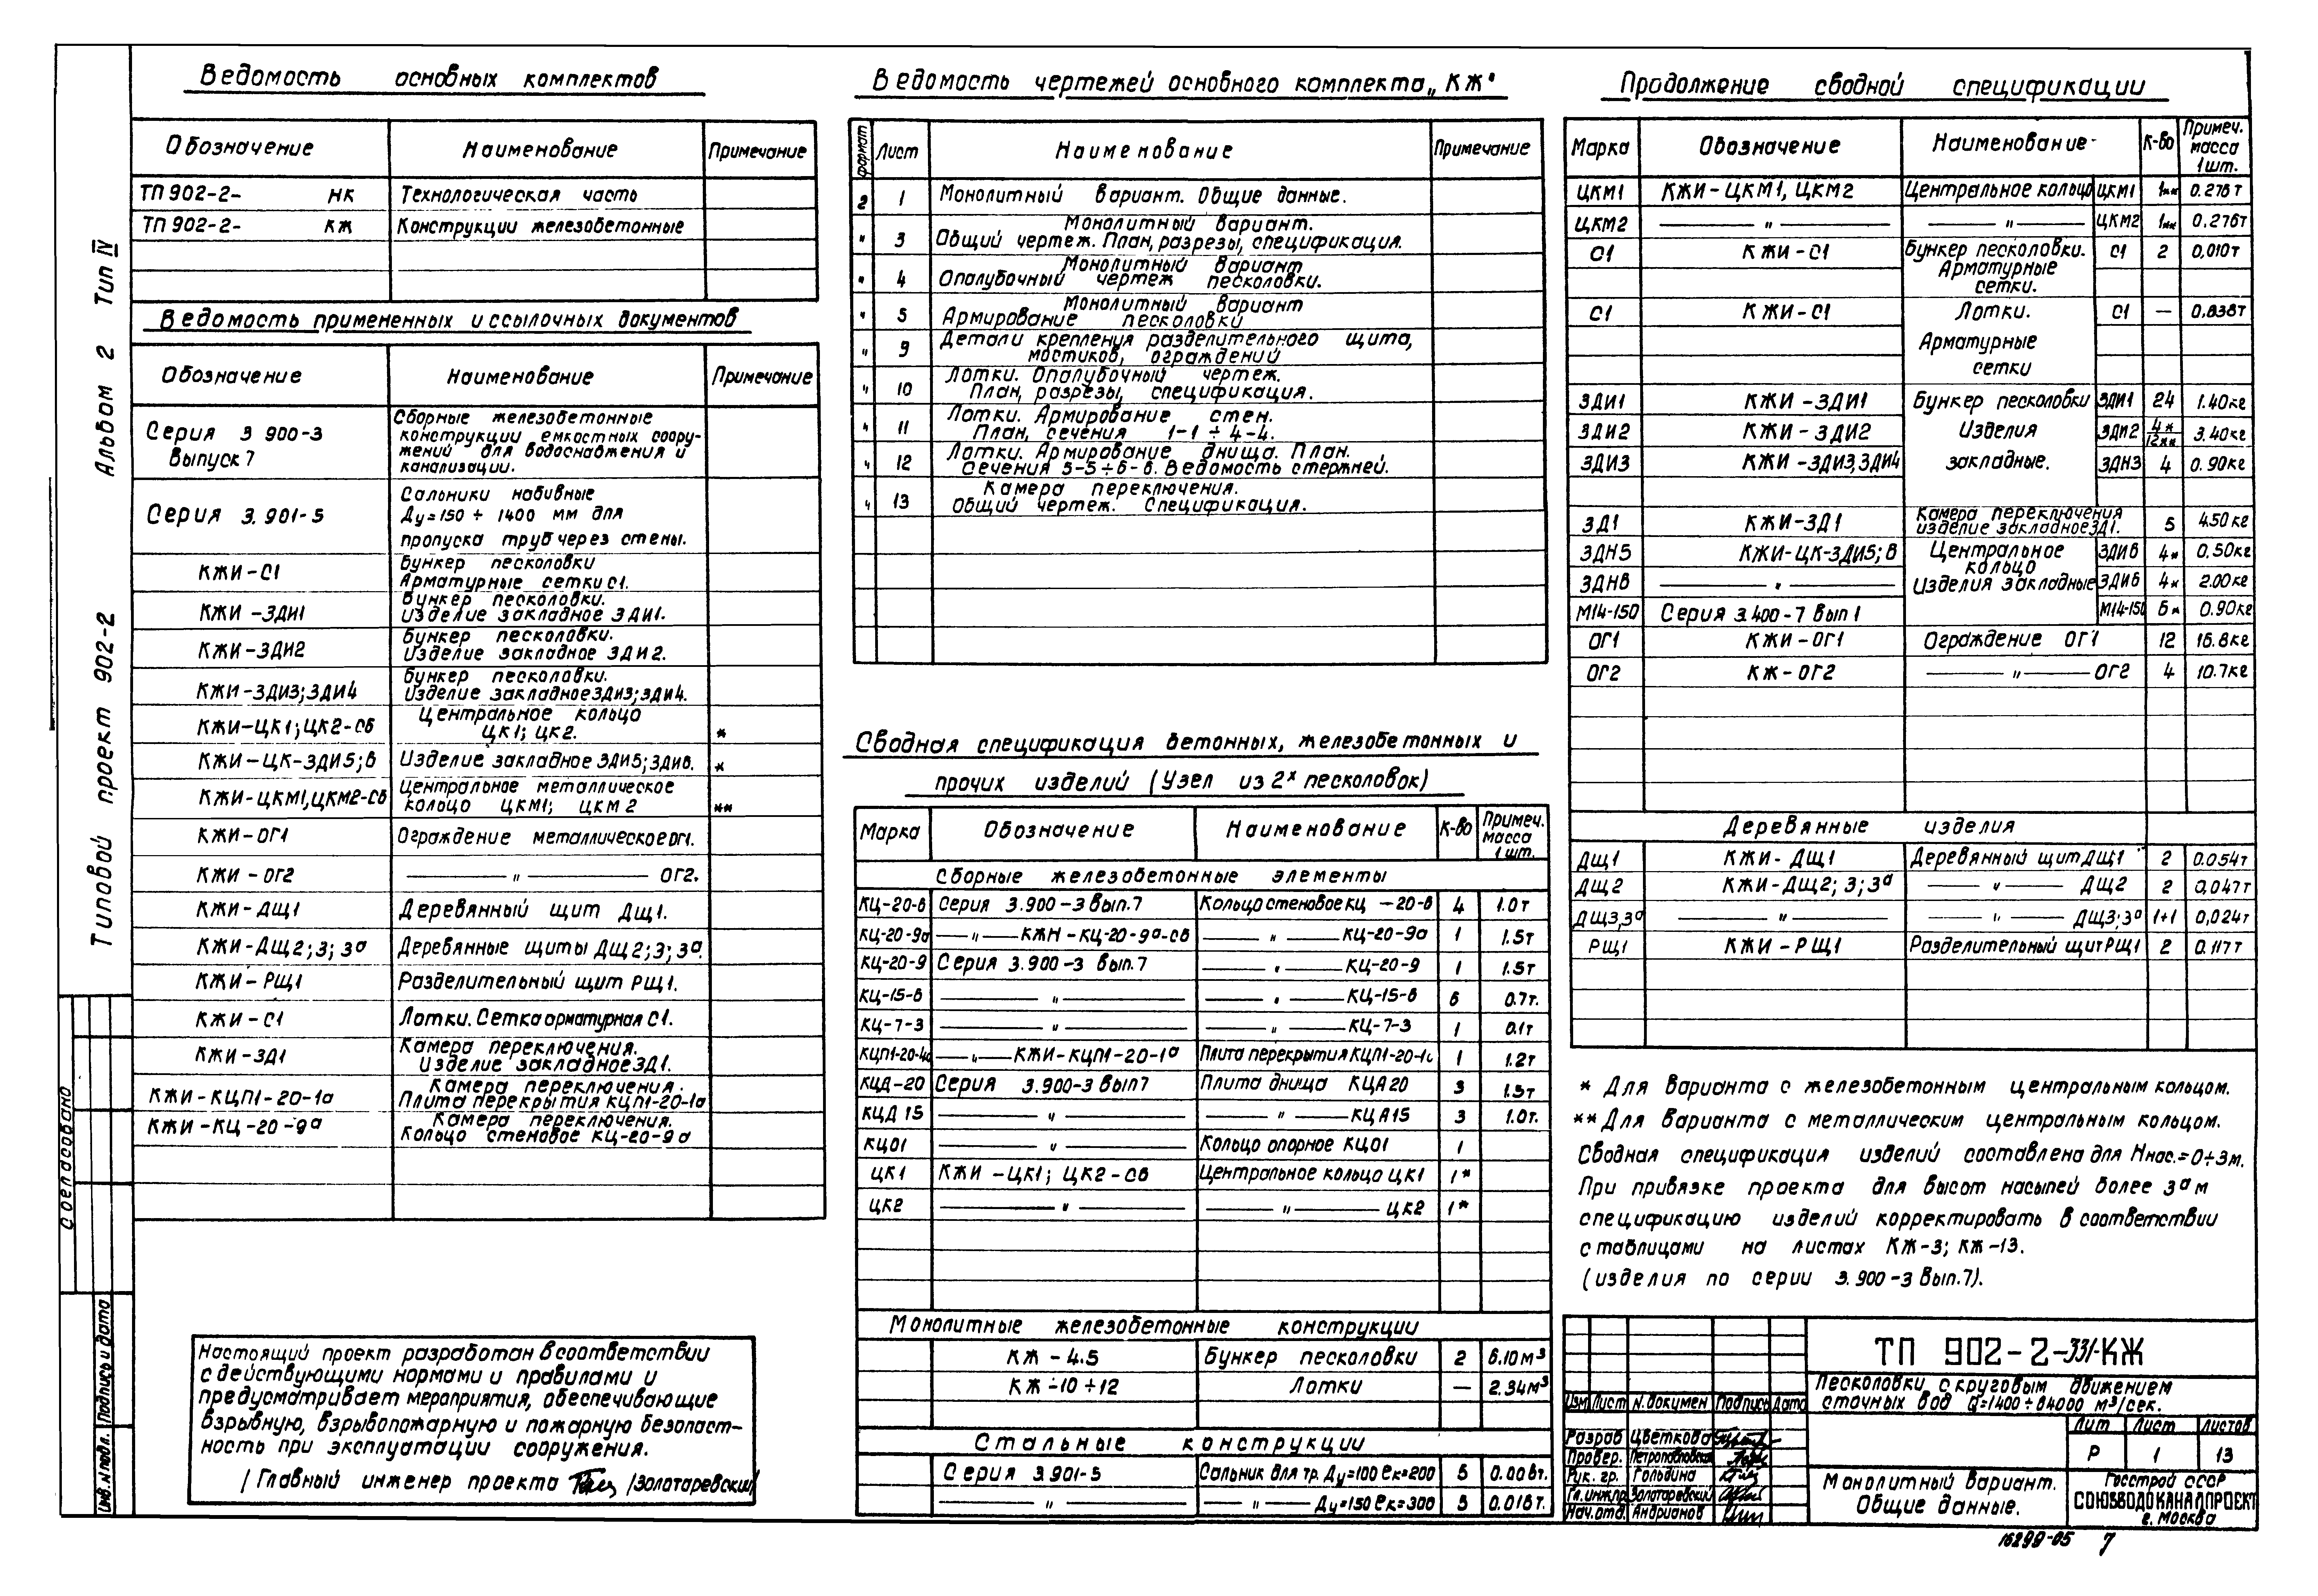 Ведомость основных комплектов
Обозначение Наименование Примечание
ТП 902-2- НК Технологическая часть
ТП 902-2- КЖ Конструкции железобетонные
Ведомость примененных и ссылочных документов
Обозначение Наименование Примечание
Серия 3 900-3 Выпуск 7
Сборные железобетонные
конструкции емкостных соору-
жений для водоснабжения и
канализации.
Серия 3.901-5
Сальники набивные
Ду=150 ÷ 1400 мм для
пропуска труб через стены.
КЖИ-С1 Бункер песколовки
Арматурные сетки С1.
КЖИ-ЗДИ1 Бункер песколовки.
Изделие закладное ЗДИ1.
КЖИ-ЗДИ2 Бункер песколовки.
Изделие закладное ЗДИ2.
КЖИ-ЗДИ3; ЗДИ4 Бункер песколовки.
Изделие закладное ЗДИ3; ЗДИ4.
КЖИ-ЦК1; ЦК2-Сб Центральное кольцо
ЦК1; ЦК2. *
КЖИ-ЦК-ЗДИ5; 6 Изделие закладное ЗДИ5; ЗДИ6. *
КЖИ-ЦКМ1, ЦКМ2-Сб Центральное металлическое
кольцо ЦКМ1; ЦКМ2 **
КЖИ-ОГ1 Ограждение металлическое ОГ1.
КЖИ-ОГ2 — " — ОГ2.
КЖИ-ДЩ1 Деревянный щит ДЩ1.
КЖИ-ДЩ2; 3; 3а Деревянные щиты ДЩ2; 3; 3а.
КЖИ-РЩ1 Разделительный щит РЩ1.
КЖИ-С1 Лотки. Сетка арматурная С1.
КЖИ-ЗД1 Камера переключения.
Изделие закладное ЗД1.
КЖИ-КЦП1-20-1а Камера переключения.
Плита перекрытия КЦП1-20-1а
КЖИ-КЦ-20-9а Камера переключения.
Кольцо стеновое КЦ-20-9а
Настоящий проект разработан в соответствии
с действующими нормами и правилами и
предусматривает мероприятия, обеспечивающие
взрывную, взрывопожарную и пожарную безопас-
ность при эксплуатации сооружения.
/Главный инженер проекта /Золотаревский/
Ведомость чертежей основного комплекта „КЖ"
формат Лист Наименование Примечание
2 1 Монолитный вариант. Общие данные.
" 3 Монолитный вариант.
Общий чертеж. План, разрезы, спецификация.
" 4 Монолитный вариант
Опалубочный чертеж песколовки.
" 5 Монолитный вариант
Армирование песколовки
" 9 Детали крепления разделительного щита,
мостиков, ограждений
" 10 Лотки. Опалубочный чертеж.
План, разрезы, спецификация.
" 11 Лотки. Армирование стен.
План, сечения 1-1 ÷ 4-4.
" 12 Лотки. Армирование днища. План.
Сечения 5-5 ÷ 6-6. Ведомость стержней.
" 13 Камера переключения.
Общий чертеж. Спецификация.
Сводная спецификация бетонных, железобетонных и
прочих изделий (Узел из 2х песколовок)
Марка Обозначение Наименование К-во Примеч. масса 1 шт.
Сборные железобетонные элементы
КЦ-20-6 Серия 3.900-3 Вып.7 Кольцо стеновое КЦ-20-6 4 1.0т
КЦ-20-9а — " — КЖИ-КЦ-20-9а-Сб — " — КЦ-20-9а 1 1.5т
КЦ-20-9 Серия 3.900-3 вып.7 — " — КЦ-20-9 1 1.5т
КЦ-15-6 — " — — " — КЦ-15-6 6 0.7т.
КЦ-7-3 — " — — " — КЦ-7-3 1 0.1т
— " — КЖИ-КЦП1-20-1а Плита перекрытия 1 1.2т
КЦД-20 Серия 3.900-3 Вып7 Плита днища КЦД20 3 1.5т
КЦД 15 — " — — " — КЦД15 3 1.0т.
КЦО1 — " — Кольцо опорное КЦО1 1
ЦК1 КЖИ-ЦК1; ЦК2-Сб Центральное кольцо ЦК1 1*
ЦК2 — " — — " — ЦК2 1*
Монолитные железобетонные конструкции
КЖ-4.5 Бункер песколовки 2 6.10м³
КЖ-10÷12 Лотки — 2.34м³
Стальные конструкции
Серия 3.901-5 Сальник для тр. Ду=100 ℓк=200 5 0.006т.
— " — — " — Ду=150 ℓк=300 3 0.016т.
Продолжение сводной спецификации
Марка Обозначение Наименование К-во Примеч. масса 1шт.
ЦКМ1 КЖИ-ЦКМ1, ЦКМ2 Центральное кольцо ЦКМ1 1** 0.276т
ЦКМ2 — " — — " — ЦКМ2 1** 0.276т
С1 КЖИ-С1 Бункер песколовки. С1 2 0,010т
Арматурные
сетки.
С1 КЖИ-С1 Лотки. С1 — 0.838т
Арматурные
сетки
ЗДИ1 КЖИ-ЗДИ1 Бункер песколовки ЗДИ1 24 1.40кг
ЗДИ2 КЖИ-ЗДИ2 Изделия ЗДИ2 4*/12** 3.40кг
ЗДИ3 КЖИ-ЗДИ3, ЗДИ4 закладные. ЗДИ3 4 0.90кг
ЗД1 КЖИ-ЗД1 Камера переключения
изделие закладное ЗД1. 5 4.50кг
ЗДИ5 КЖИ-ЦК-ЗДИ5; 6 Центральное ЗДИ6 4* 0.50кг
кольцо
ЗДИ6 — " — Изделия закладные ЗДИ6 4* 2.00кг
М14-150 Серия 3.400-7 вып 1 М14-150 6* 0.90кг
ОГ1 КЖИ-ОГ1 Ограждение ОГ1 12 16.8кг
ОГ2 КЖ-ОГ2 — " — ОГ2 4 10.7кг
Деревянные изделия
ДЩ1 КЖИ-ДЩ1 Деревянный щит ДЩ1 2 0.054т
ДЩ2 КЖИ-ДЩ2; 3; 3а — " — ДЩ2 2 0,047т
ДЩ3,3а — " — — " — ДЩ3; 3а 1+1 0,024т
РЩ1 КЖИ-РЩ1 Разделительный щит РЩ1 2 0.117т
* Для варианта с железобетонным центральным кольцом.
** Для варианта с металлическим центральным кольцом.
Сводная спецификация изделий составлена для Ннас.=0÷3м.
При привязке проекта для высот насыпей более 3а м
спецификацию изделий корректировать в соответствии
с таблицами на листах КЖ-3; КЖ-13.
(изделия по серии 3.900-3 Вып.7).
ТП 902-2-331-КЖ
Песколовки с круговым движением
сточных вод Q=1400÷64000 м³/сек.
Изм Лист N.Докумен Подпись Дата
Разраб Цветкова
Провер. Петропавловская
Рук. гр. Гольдина
Гл.инж.пр. Золотаревский
Нач.отд. Андрианов
Лит Лист Листов
Р 1 13
Монолитный вариант.
Общие данные.
Госстрой СССР
СОЮЗВОДОКАНАЛПРОЕКТ
г. Москва
16299-05 7
Типовой проект 902-2 Альбом 2 Тип IV
Согласовано
Инв. N подл. Подпись и дата